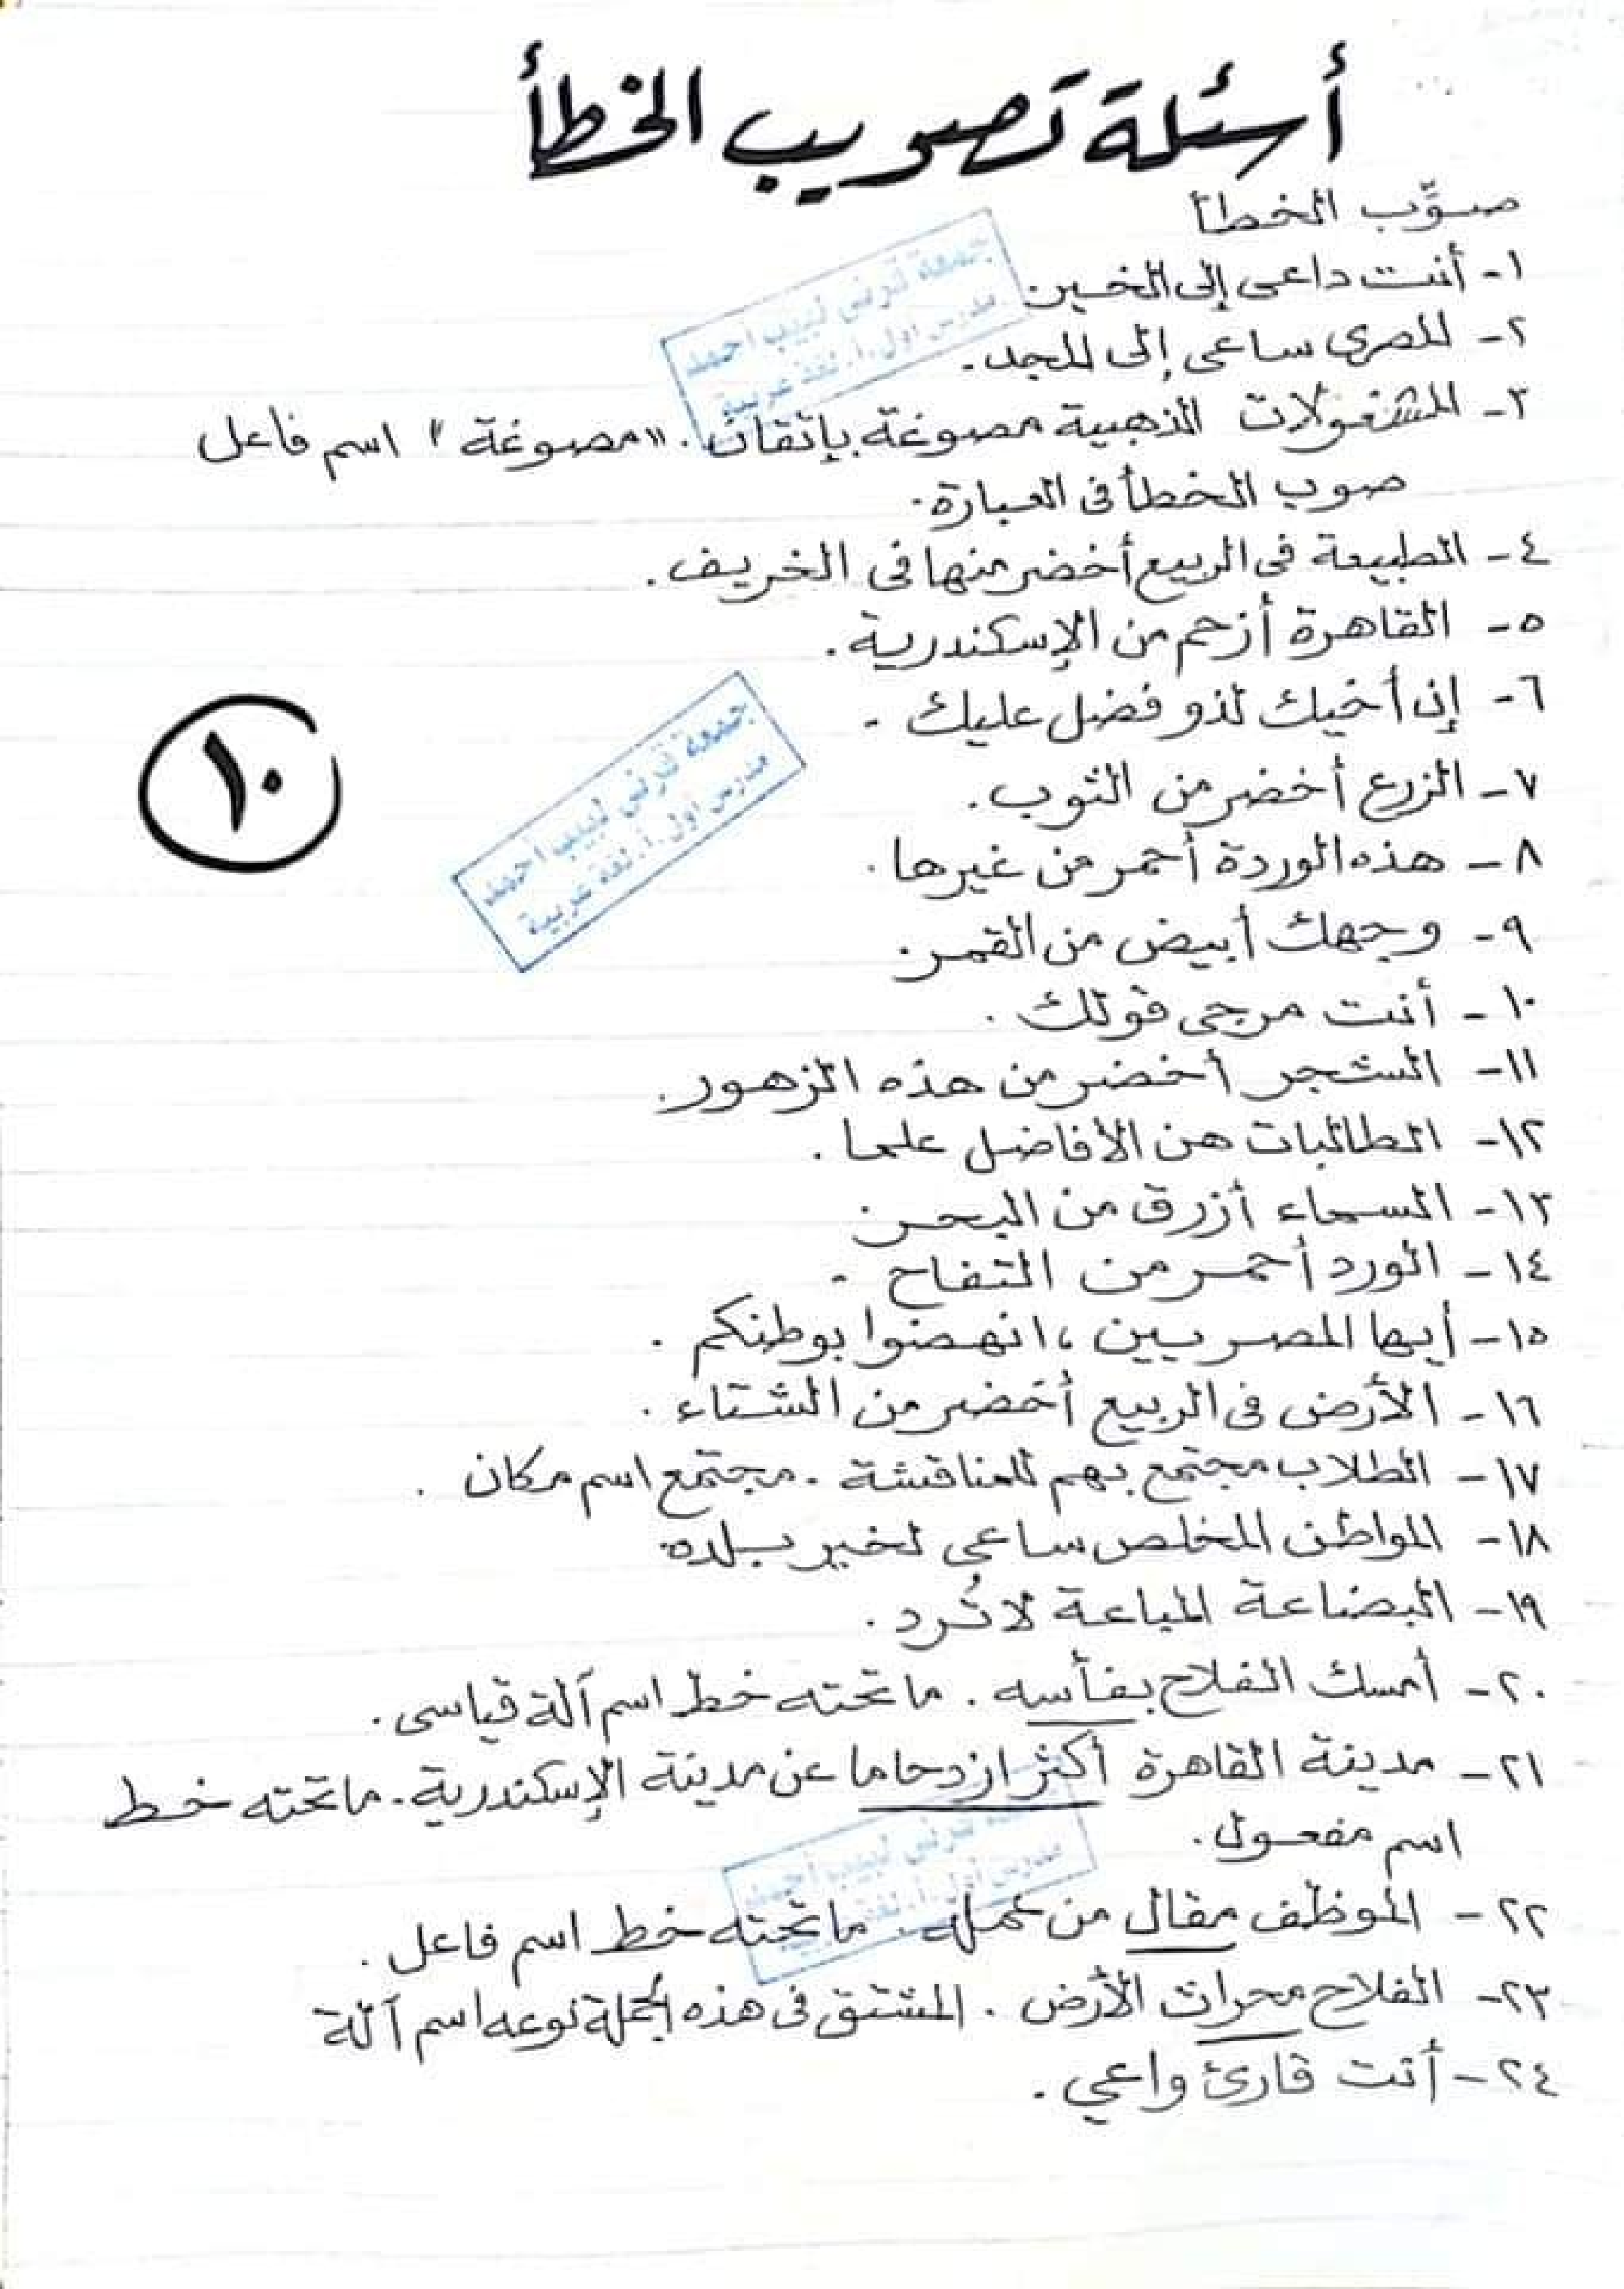 أسئلة تصويب الخطأ
صوِّب الخطأ
١- أنت داعى إلى الخير.
جمعة قرنى لبيب احمد
مدرس اول.أ.لغة عربية
٢- المصرى ساعى إلى المجد.
٣- المشغولات الذهبية مصوغة بإتقان. "مصوغة" اسم فاعل
صوب الخطأ فى العبارة.
٤- الطبيعة فى الربيع أخضر منها فى الخريف.
٥- القاهرة أزحم من الإسكندرية.
٦- إن أخيك لذو فضل عليك.
٧- الزرع أخضر من الثوب.
جمعة قرنى لبيب احمد
مدرس اول.أ.لغة عربية
١٠
٨- هذه الوردة أحمر من غيرها.
٩- وجهك أبيض من القمر.
١٠- أنت مرجى قولك.
١١- الشجر أخضر من هذه الزهور.
١٢- الطالبات هن الأفاضل علما.
١٣- السماء أزرق من البحر.
١٤- الورد أحمر من التفاح.
١٥- أيها المصريين، انهضوا بوطنكم.
١٦- الأرض فى الربيع أخضر من الشتاء.
١٧- الطلاب مجتمع بهم للمناقشة. مجتمع اسم مكان.
١٨- المواطن المخلص ساعى لخير بلده.
١٩- البضاعة المباعة لا تُرد.
٢٠- أمسك الفلاح بفأسه. ما تحته خط اسم آلة قياسى.
٢١- مدينة القاهرة أكثر ازدحاما عن مدينة الإسكندرية. ما تحته خط
اسم مفعول.
قرنى لبيب احمد
مدرس اول.أ.لغة
٢٢- الموظف مقال من عمله. ما تحته خط اسم فاعل.
٢٣- الفلاح محراث الأرض. المشتق فى هذه الجملة نوعه اسم آلة
٢٤- أنت قارئ واعي.